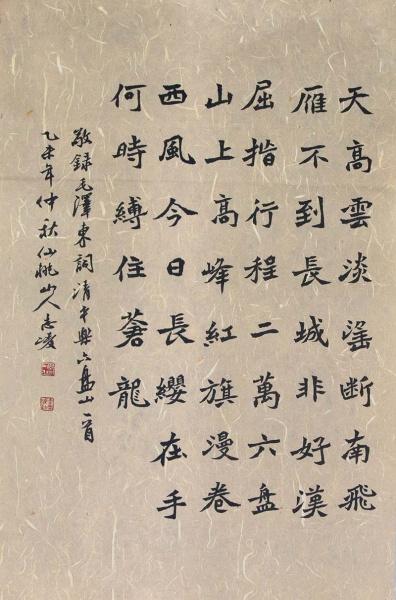 天高雲淡望断南飛
雁不到長城非好漢
屈指行程二萬六盘
山上高峰紅旗漫卷
西風今日長纓在手
何時縛住蒼龍
敬録毛澤東詞清平樂六盘山一首
乙未年仲秋仙桃山人志凌